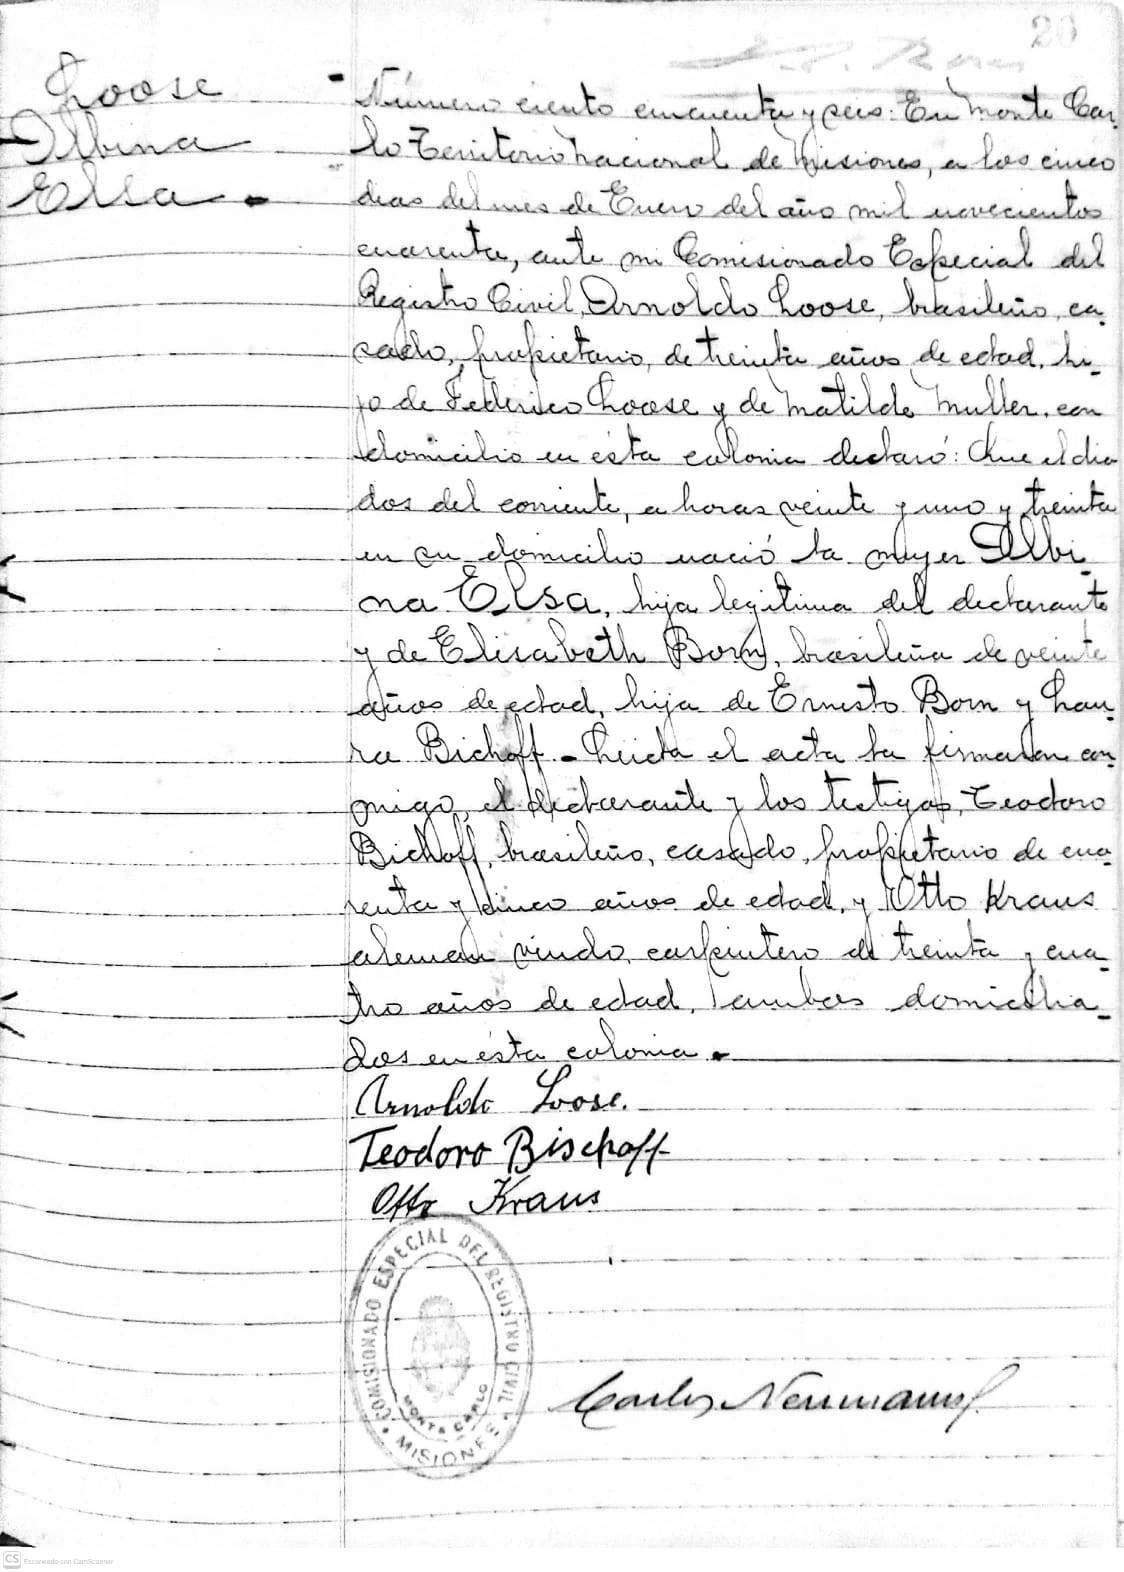 20
Loose
Albina
Elsa
Número ciento cincuenta y seis: En Monte Car-
lo Territorio nacional de Misiones, a los cinco
dias del mes de Enero del año mil novecientos
cuarenta, ante mi Comisionado Especial del
Registro Civil, Arnoldo Loose, brasileño, ca-
sado, propietario, de treinta años de edad, hi-
jo de Federico Loose y de Matilde Muller, con
domicilio en ésta colonia declaró: Que el dia
dos del corriente, a horas veinte y uno y treinta
en su domicilio nació la mujer Albi-
na Elsa, hija legitima del declarante
y de Elisabeth Born, brasileña de veinte
años de edad, hija de Ernesto Born y Lau-
ra Bichoff.- Leida el acta la firmaron con-
migo, el declarante y los testigos, Teodoro
Bichoff, brasileño, casado, propietario de cua-
renta y cinco años de edad, y Otto Kraus
aleman viudo, carpintero de treinta y cua-
tro años de edad, ambos domicilia-
dos en ésta colonia.
Arnoldo Loose.
Teodoro Bischoff
Otto Kraus
COMISIONADO ESPECIAL DEL REGISTRO CIVIL
MONTE CARLO
MISIONES
Carlos Neumann
CS Escaneado con CamScanner